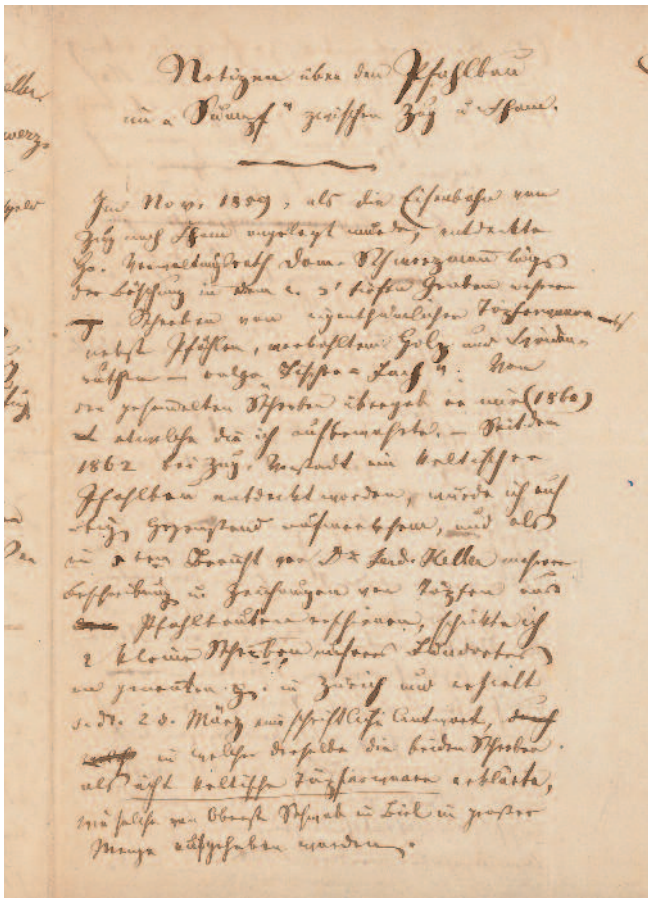 Notizen über den Pfahlbau
im „Sumpf" zwischen Zug u. Cham.
Im Nov. 1859, als die Eisenbahn von
Zug nach Cham angelegt wurde, entdeckte
Hr. Verwaltungsrath Dom. Schwerzmann längs
der Böschung in dem c. 3' tiefen Graben mehrere
Scherben von eigenthümlicher Töpferwaare
nebst Pfählen, verkohltem Holz und
ruthen – vulgo Fischer „Fach". Von
den gesammelten Scherben übergab er mir (1860)
etwelche die ich aufbewahrte. – Seitdem
1862 bei Zug, Vorstadt ein keltischer
Pfahlbau entdeckt worden, wurde ich auf
Gegenstand aufmerksam, und als
in Bericht von Dr. Ferd. Keller mehrere
Beschreibung u. Zeichnungen von Töpfen aus
Pfahlbauten erschienen, schickte ich
2 kleine Scherben unseres Fundortes
an genannten in Zürich und erhielt
d. d. 2 d. März eine schriftliche Antwort, durch
welche in welcher derselbe die beiden Scherben
als ächt keltische Töpferwaare erklärte,
wie solche von Oberst Schwab in Biel in grosser
Menge aufgehoben worden.
keller